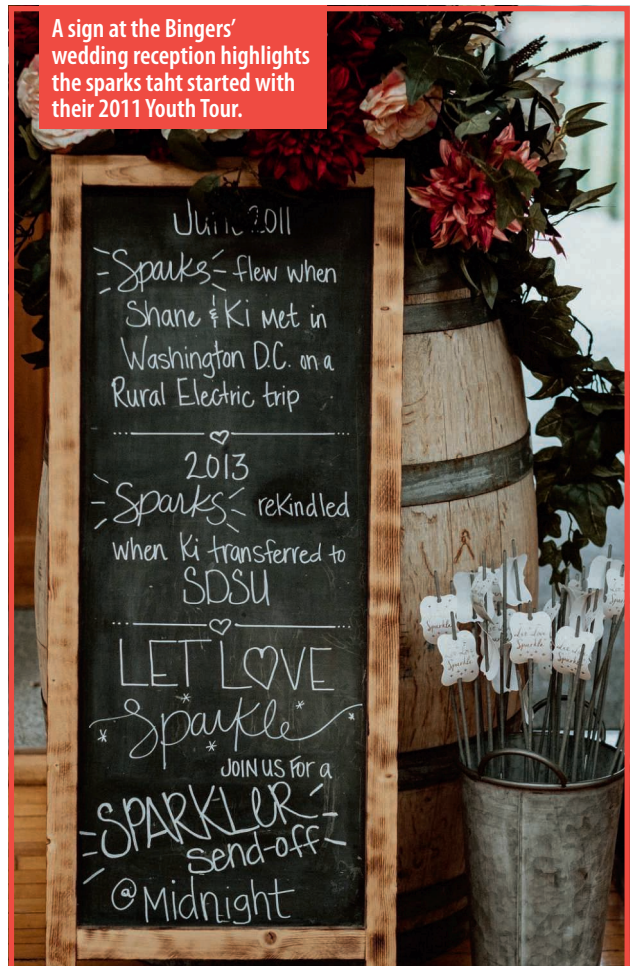 A sign at the Bingers’
wedding reception highlights
the sparks taht started with
their 2011 Youth Tour.
June 2011
Sparks flew when
Shane & Ki met in
Washington D.C. on a
Rural Electric trip
2013
Sparks rekindled
when Ki transferred to
SDSU
LET LOVE
Sparkle
JOIN US FOR a
SPARKLER
send-off
@ Midnight
Let Love
Sparkle